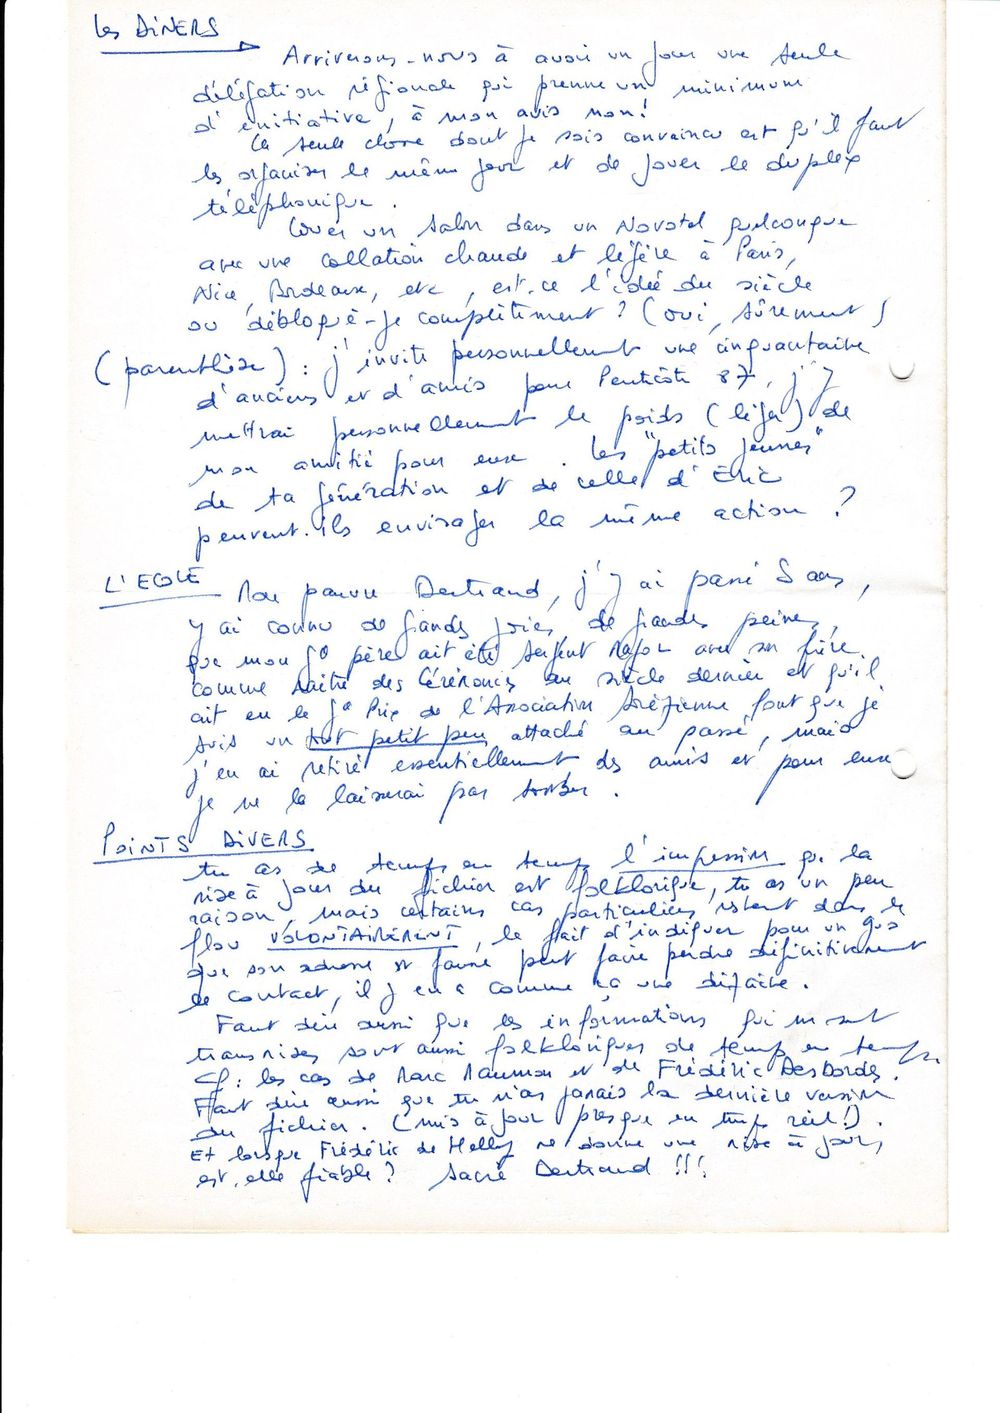 les DINERS
Arriverons-nous à avoir un jour une seule
délégation régionale qui prenne un minimum
d'initiative, à mon avis non!
La seule chose dont je sois convaincu est qu'il faut
les organiser le même jour et de jouer le duplex
téléphonique.
Louer un salon dans un Novotel quelconque
avec une collation chaude et légère à Paris,
Nice, Bordeaux, etc, est-ce l'idée du siècle
ou débloqué-je complètement? (oui, sûrement)
(parenthèse): j'invite personnellement une cinquantaine
d'anciens et d'amis pour Pentecôte 87, j'y
mettrai personnellement le poids (léger) de
mon amitié pour eux. Les "petits jeunes"
de ta génération et de celle d'Éric
peuvent-ils envisager la même action?
L'ECOLE Mon pauvre Bertrand, j'y ai passé 8 ans,
y ai connu de grandes joies, de grandes peines,
que mon gd père ait été Sergent Major avec son frère
comme Maître des Cérémonies au siècle dernier et qu'il
ait eu le gd Prix de l'Association Sorézienne font que je
suis un tout petit peu attaché au passé, mais
j'en ai retiré essentiellement des amis et pour eux
je ne la laisserai pas tomber.
POINTS DIVERS
tu as de temps en temps l'impression que la
mise à jour du fichier est folklorique, tu as un peu
raison, mais certains cas particuliers restent dans le
flou VOLONTAIREMENT, le fait d'indiquer pour un gus
que son adresse est fausse peut faire perdre définitivement
le contact, il y en a comme ça une dizaine.
Faut dire aussi que les informations qui me sont
transmises sont aussi folkloriques de temps en temps.
Cf: les cas de Marc Maumon et de Frédéric Desbordes.
Faut dire aussi que tu n'as jamais la dernière version
du fichier. (mis à jour presque en temps réel!).
Et lorsque Frédéric de Helly me donne une mise à jour,
est-elle fiable? Sacré Bertrand !!!